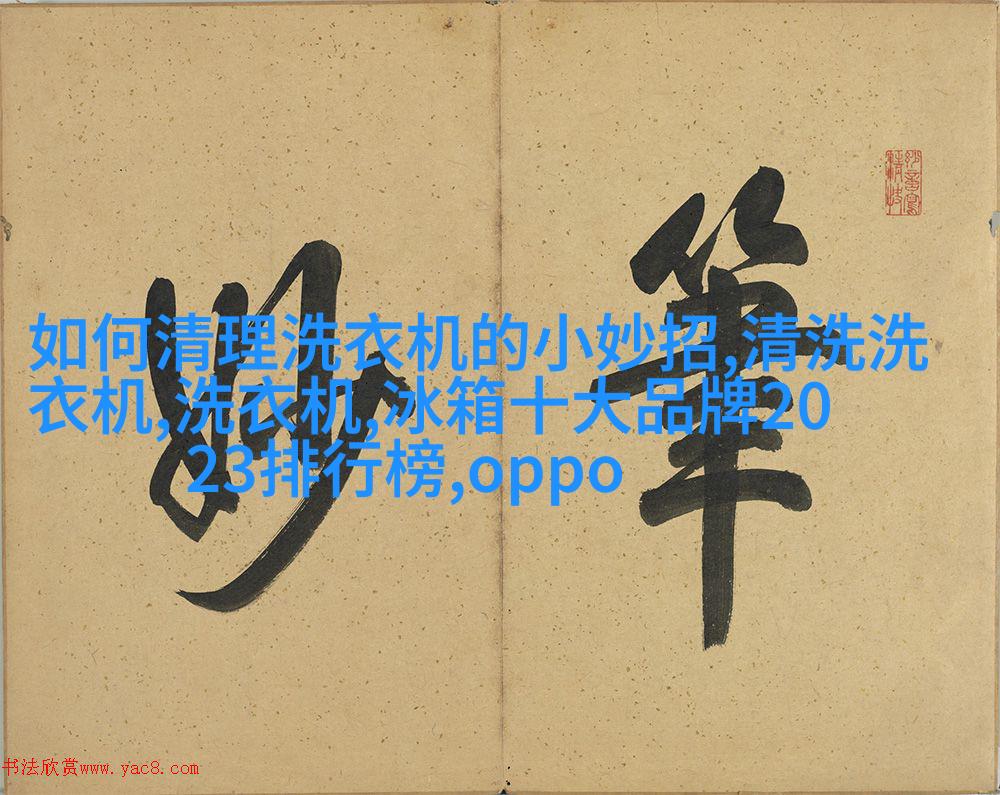 筆
妙
如何清理洗衣机的小妙招,清洗洗
衣机,洗衣机,冰箱十大品牌20
23排行榜,oppo
书法欣赏www.yac8.com